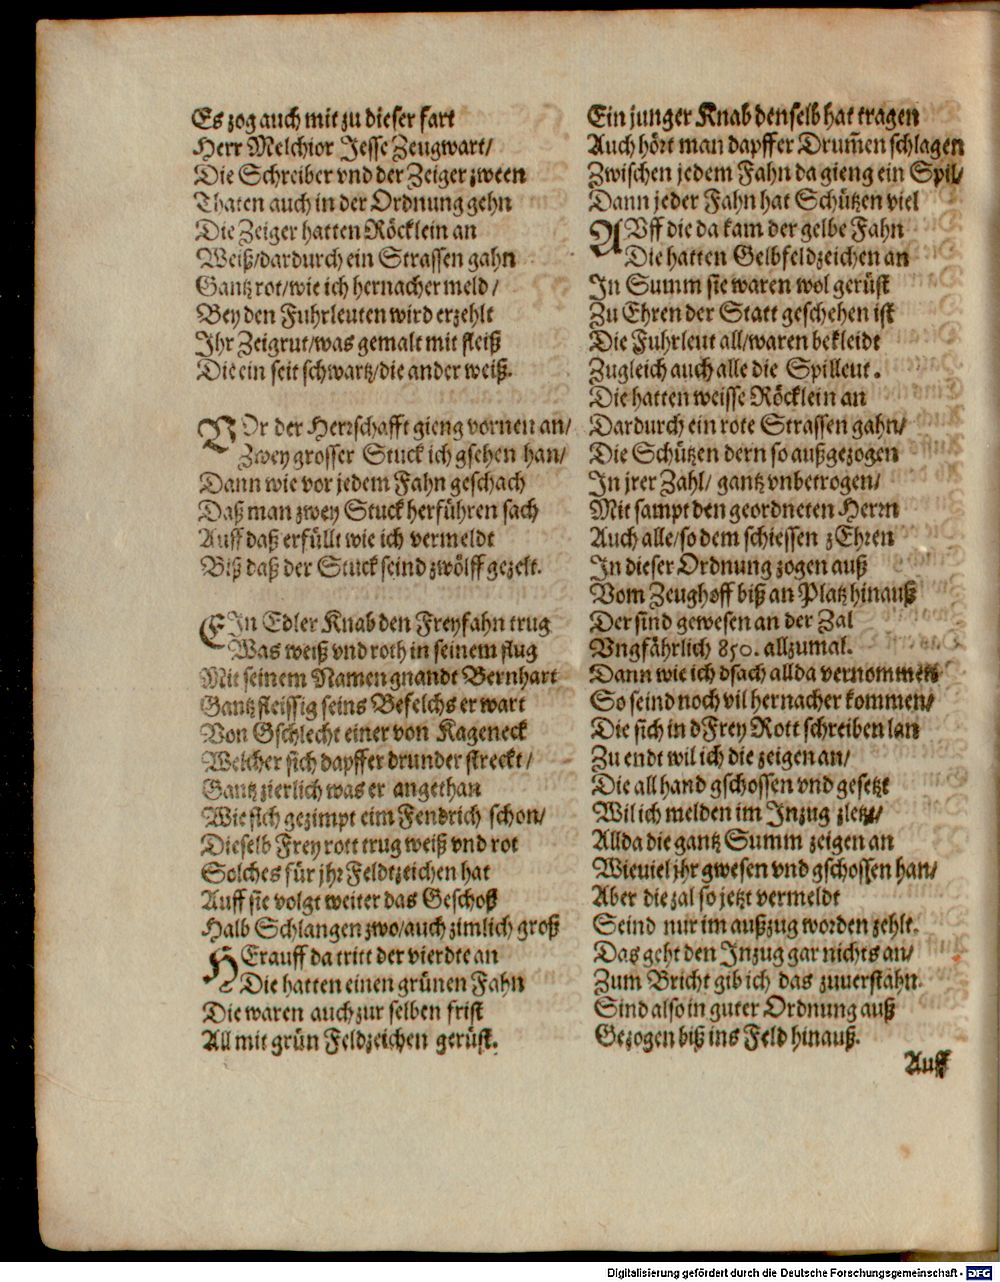 Es zog auch mit zu dieser fart
Herr Melchior Jesse Zeugwart/
Die Schreiber vnd der Zeiger zween
Thaten auch in der Ordnung gehn
Die Zeiger hatten Röcklein an
Weiß/dardurch ein Strassen gahn
Gantz rot/wie ich hernacher meld/
Bey den Fuhrleuten wird erzehlt
Ihr Zeigrut/was gemalt mit fleiß
Die ein seit schwartz/die ander weiß.
VOr der Herrschafft gieng vornen an/
Zwey grosser Stuck ich gsehen han/
Dann wie vor jedem Fahn geschach
Daß man zwey Stuck herführen sach
Auff daß erfüllt wie ich vermeldt
Biß daß der Stuck seind zwölff gezelt.
EIn Edler Knab den Freyfahn trug
Was weiß vnd roth in seinem flug
Mit seinem Namen gnandt Bernhart
Gantz fleissig seins Befelchs er wart
Von Gschlecht einer von Kageneck
Welcher sich dapffer drunder streckt/
Gantz zierlich was er angethan
Wie sich gezimpt eim Fendrich schon/
Dieselb Frey rott trug weiß vnd rot
Solches für jhr Feldtzeichen hat
Auff sie volgt weiter das Geschoß
Halb Schlangen zwo/auch zimlich groß
HErauff da tritt der vierdte an
Die hatten einen grünen Fahn
Die waren auch zur selben frist
All mit grün Feldzeichen gerüst.
Ein junger Knab denselb hat tragen
Auch hört man dapffer Drum̃en schlagen
Zwischen jedem Fahn da gieng ein Spil/
Dann jeder Fahn hat Schützen viel
AVff die da kam der gelbe Fahn
Die hatten Gelbfeldzeichen an
In Summ sie waren wol gerüst
Zu Ehren der Statt geschehen ist
Die Fuhrleut all/waren bekleidt
Zugleich auch alle die Spilleut.
Die hatten weisse Röcklein an
Dardurch ein rote Strassen gahn/
Die Schützen dern so außgezogen
In jrer Zahl/ gantz vnbetrogen/
Mit sampt den geordneten Herrn
Auch alle/so dem schiessen zEhren
In dieser Ordnung zogen auß
Vom Zeughoff biß an Platz hinauß
Der sind gewesen an der Zal
Vngfährlich 850. allzumal.
Dann wie ich dsach allda vernommen
So seind noch vil hernacher kommen/
Die sich in dFrey Rott schreiben lan
Zu endt wil ich die zeigen an/
Die all hand gschossen vnd gesetzt
Wil ich melden im Inzug zletzt/
Allda die gantz Summ zeigen an
Wieuiel jhr gwesen vnd gschossen han/
Aber die zal so jetzt vermeldt
Seind nur im außzug worden zehlt.
Das geht den Inzug gar nichts an/
Zum Bricht gib ich das zuuerstahn.
Sind also in guter Ordnung auß
Gezogen biß ins Feld hinauß.
Auff
Digitalisierung gefördert durch die Deutsche Forschungsgemeinschaft - DFG